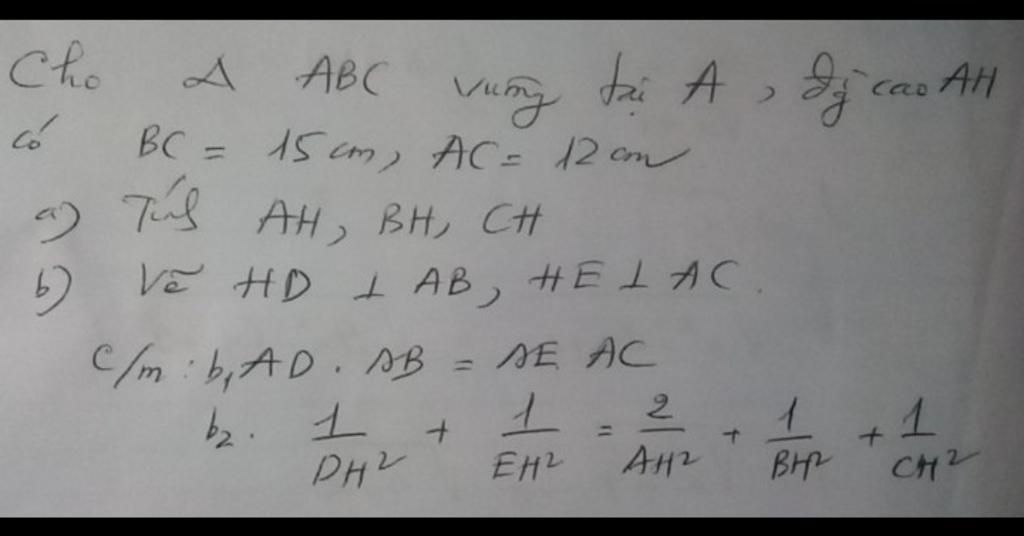 Cho Δ ABC vuông tại A, đg cao AH
có BC = 15 cm, AC = 12 cm
a) Tính AH, BH, CH
b) Vẽ HD ⊥ AB, HE ⊥ AC.
C/m : b₁ AD . AB = AE AC
b₂. 1/DH² + 1/EH² = 2/AH² + 1/BH² + 1/CH²